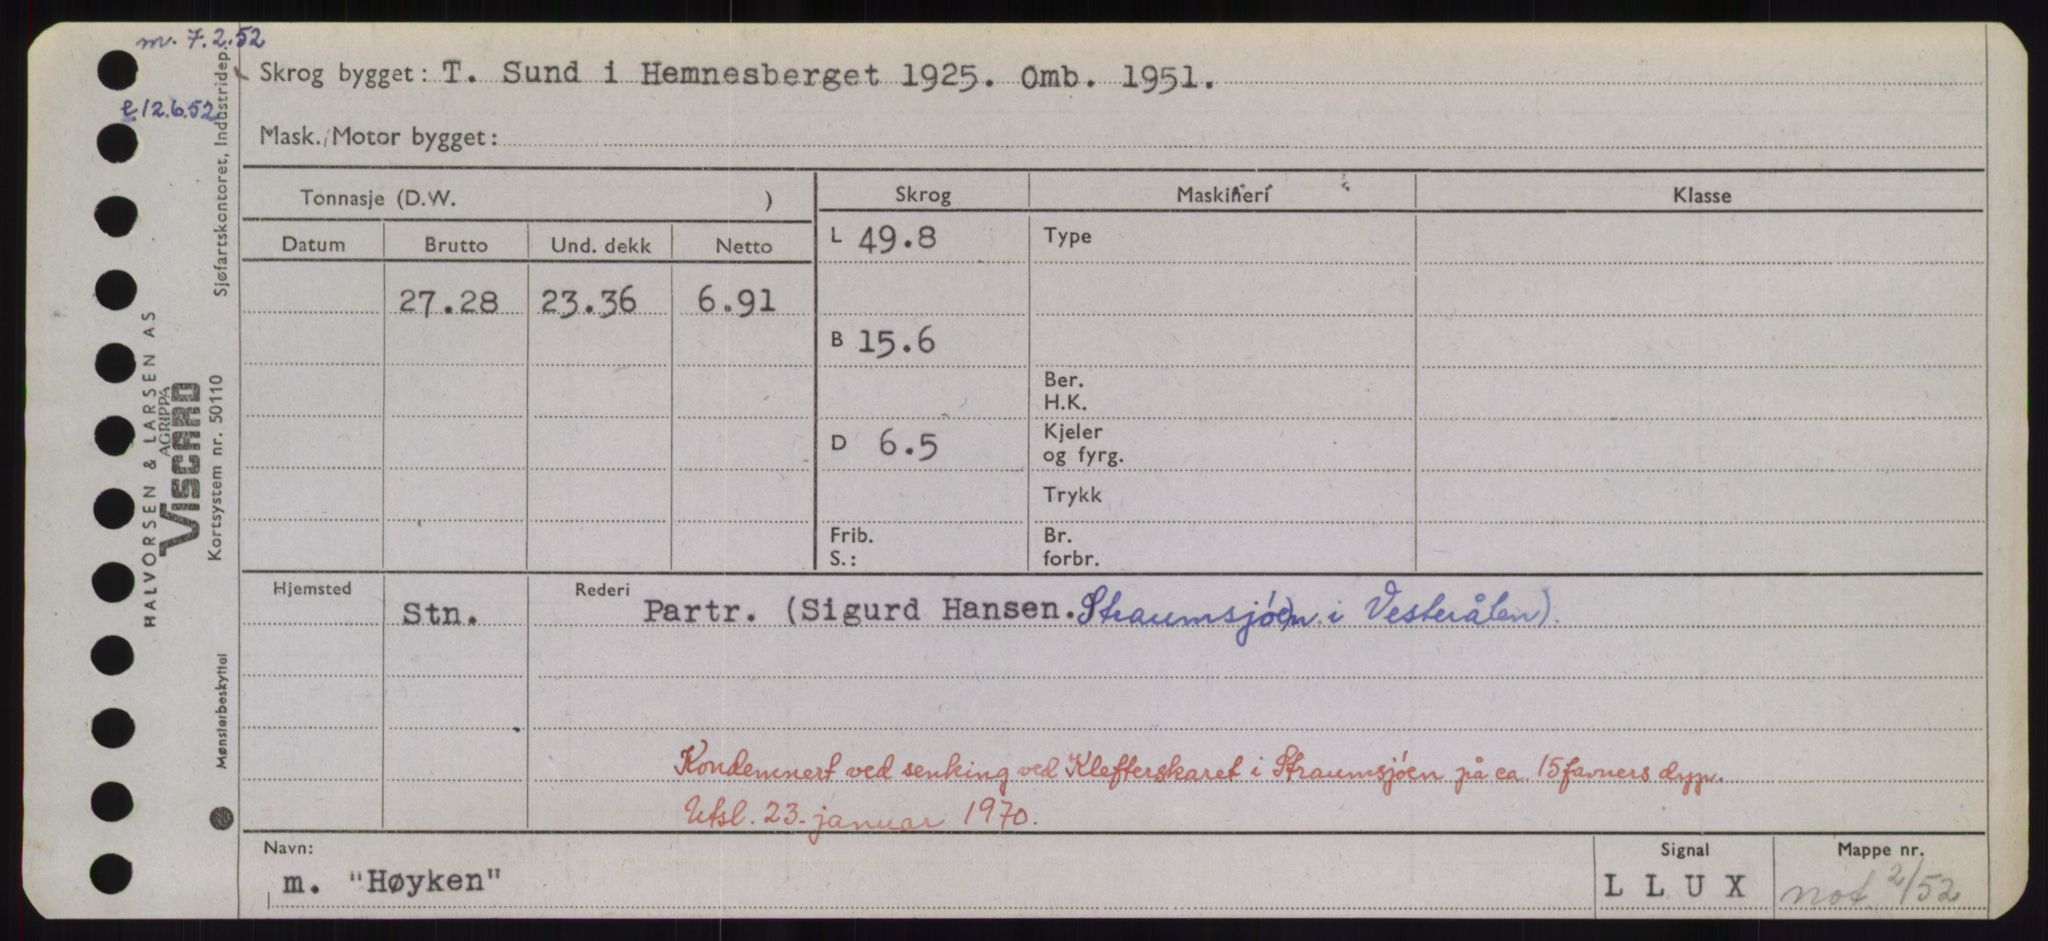 m. 7.2.52
e 12.6.52
Skrog bygget: T. Sund i Hemnesberget 1925. Omb. 1951.
Mask./Motor bygget:
Tonnasje (D.W. )
Skrog Maskineri Klasse
Datum Brutto Und. dekk Netto
L 49.8 Type
27.28 23.36 6.91
B 15.6
Ber.
H.K.
D 6.5 Kjeler
og fyrg.
Trykk
Frib. Br.
S.: forbr.
Hjemsted Rederi
Stn. Partr. (Sigurd Hansen. Straumsjöen i Vesterålen).
Kondemnert ved senking ved Klefterskaret i Straumsjöen på ca. 15 favners dyp.
Utsl. 23. januar 1970.
Navn: Signal Mappe nr.
m. "Høyken" L L U X not 2/52
Sjøfartskontoret, Industridep.
HALVORSEN & LARSEN AS
AGRIPPA
VISCARD
Kortsystem nr. 50110
Mønsterbeskyttet